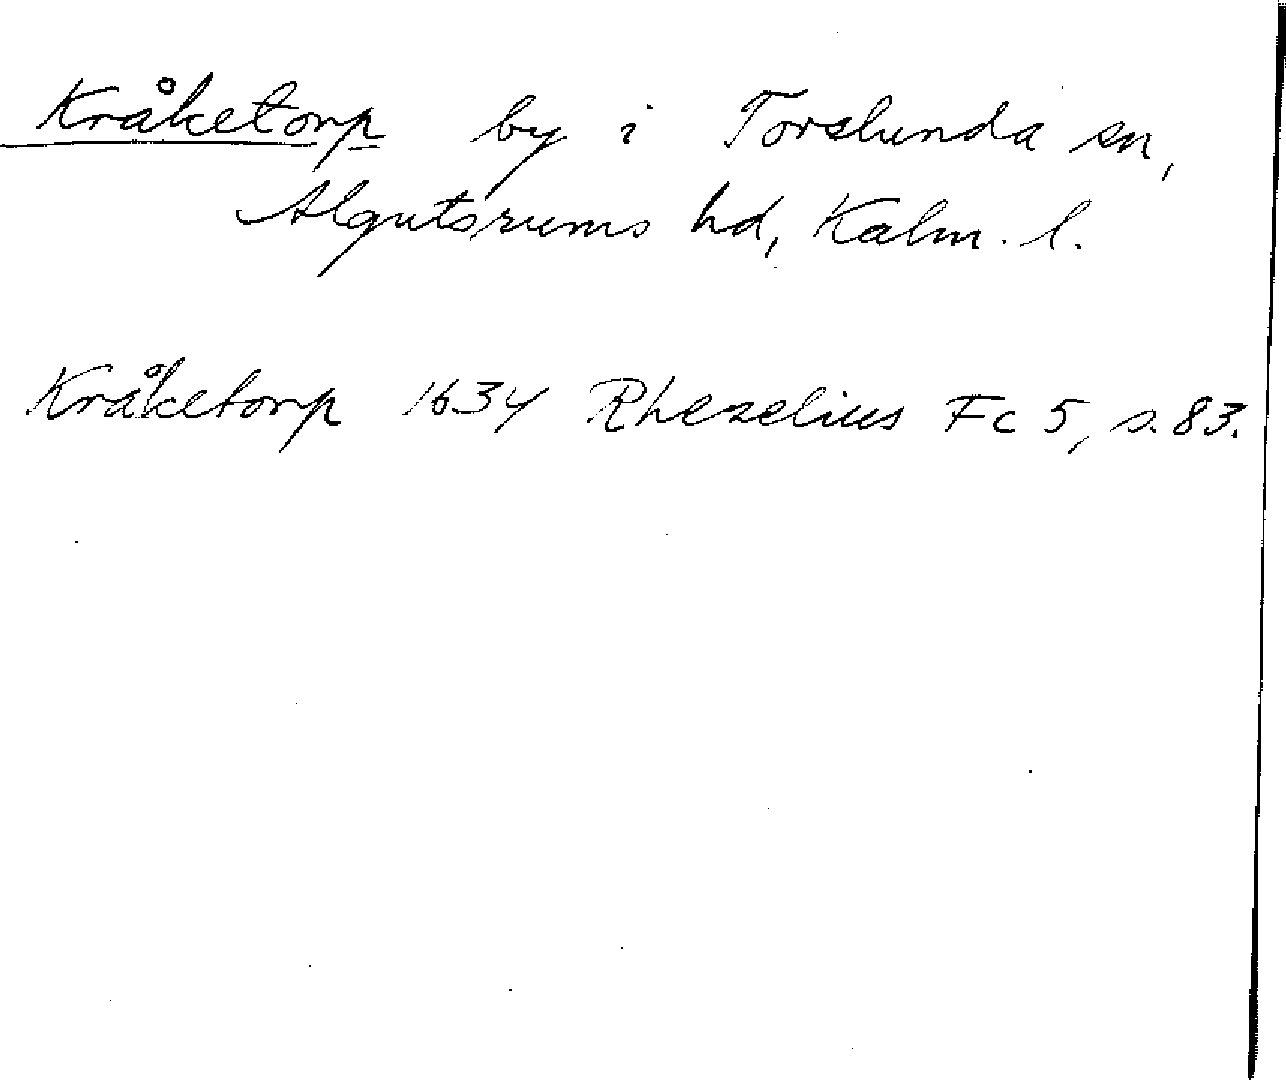 Kråketorp by i Torslunda sn,
Algutsrums hd, Kalm. l.
Kråketorp 1634 Rhezelius Fc 5, s. 83.